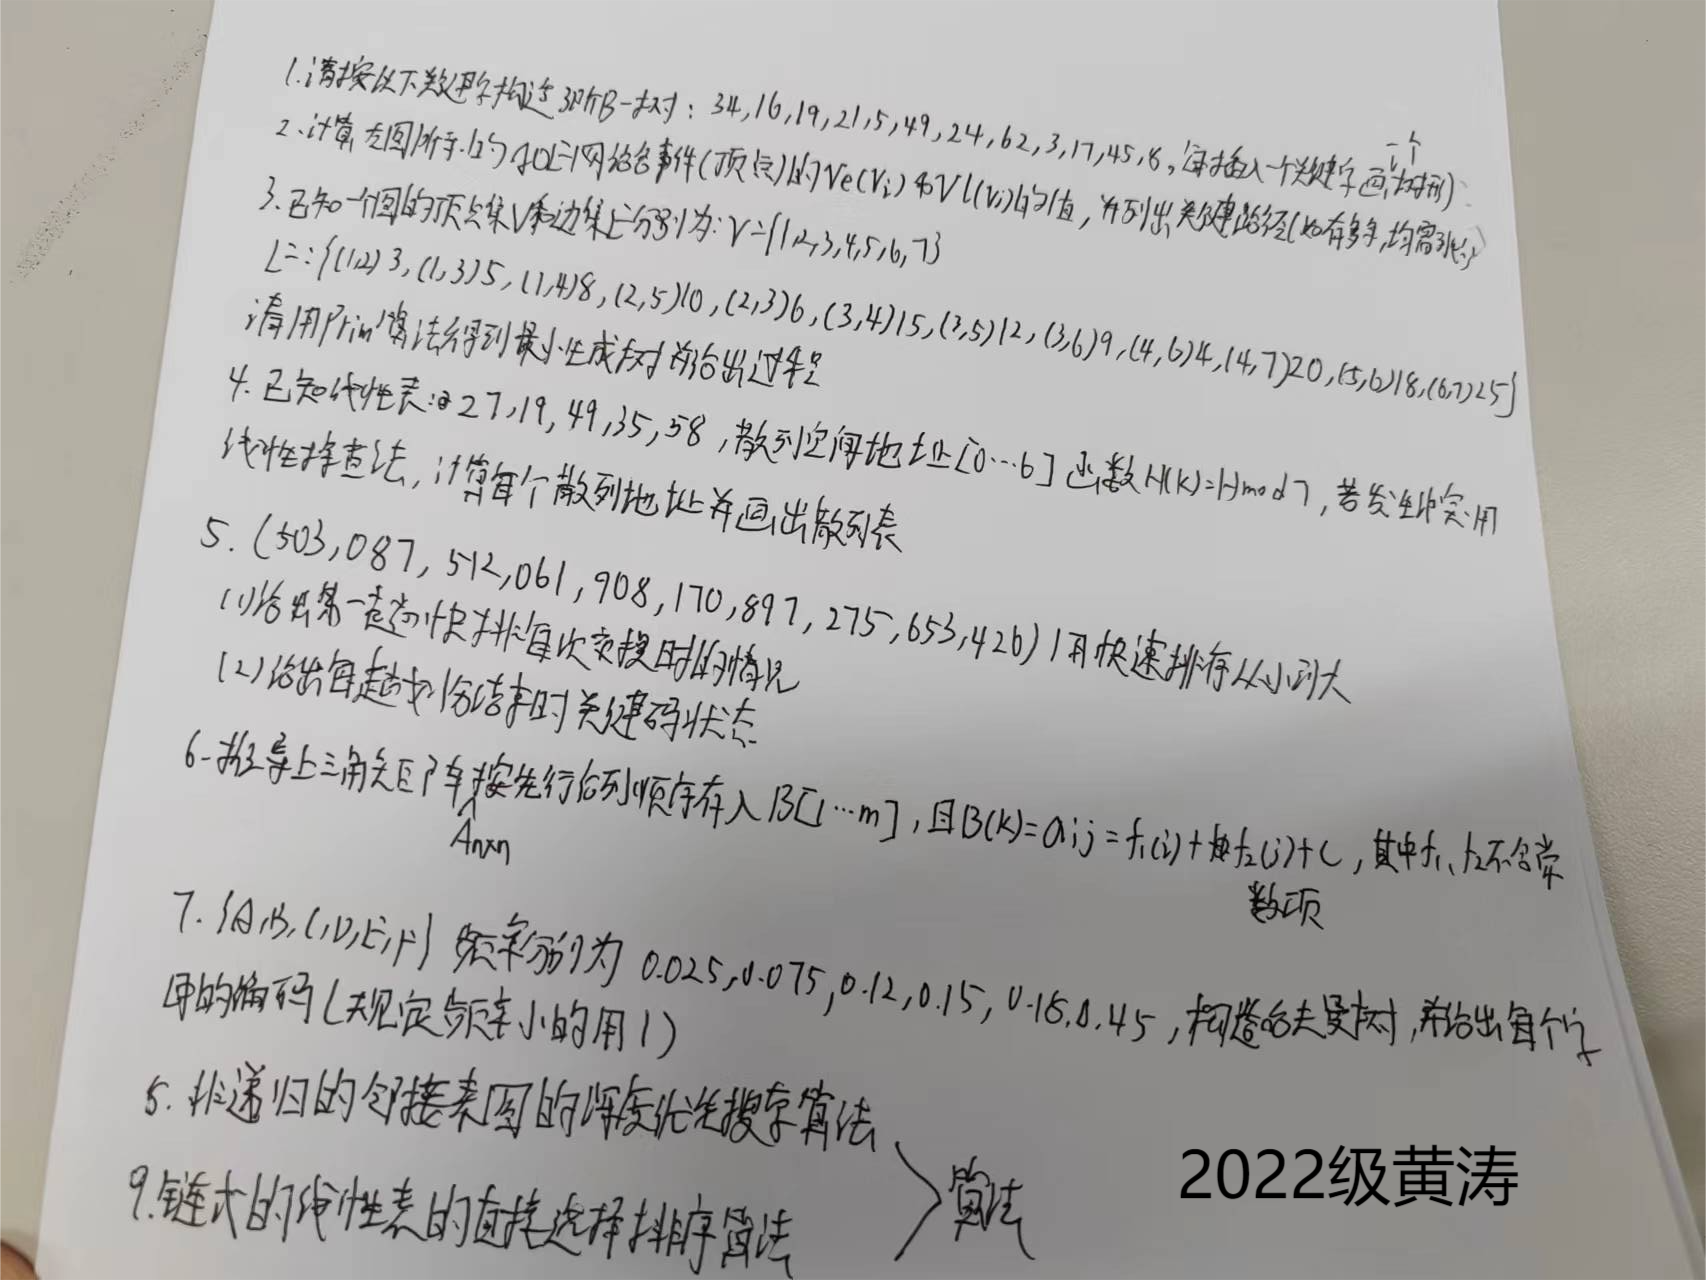 1.请按以下关键字构造3阶B-树：34,16,19,21,5,49,24,62,3,17,45,8,每插入一个关键字画一个树形
2.计算左图所示的AOE网络各事件(顶点)的Ve(Vi)和Vl(Vi)的值,并列出关键路径(如有多条,均需列出)
3.已知一个图的顶点集V和边集L分别为:V={1,2,3,4,5,6,7}
L=:{(1,2)3,(1,3)5,(1,4)8,(2,5)10,(2,3)6,(3,4)15,(3,5)12,(3,6)9,(4,6)4,(4,7)20,(5,6)18,(6,7)25}
请用Prim算法得到最小生成树并给出过程
4.已知线性表:27,19,49,35,58,散列空间地址[0…6]函数H(K)=Hmod7,若发生冲突用
线性探查法,计算每个散列地址并画出散列表
5.(503,087,512,061,908,170,897,275,653,426)用快速排序从小到大
(1)给出第一趟快排每次交换时的情况
(2)给出每趟划分结束时关键码状态
6.推导上三角矩阵按先行后列顺序存入B[1…m],且B(K)=aij=f1(i)+f2(j)+C,其中f1、f2不含常
Anxn
数项
7.{A,B,C,D,E,F}频率分别为0.025,0.075,0.12,0.15,0.18,0.45,构造哈夫曼树,并给出每个字
母的编码(规定频率小的用1)
8.非递归的邻接表图的深度优先搜索算法
9.链式的线性表的直接选择排序算法
算法
2022级黄涛